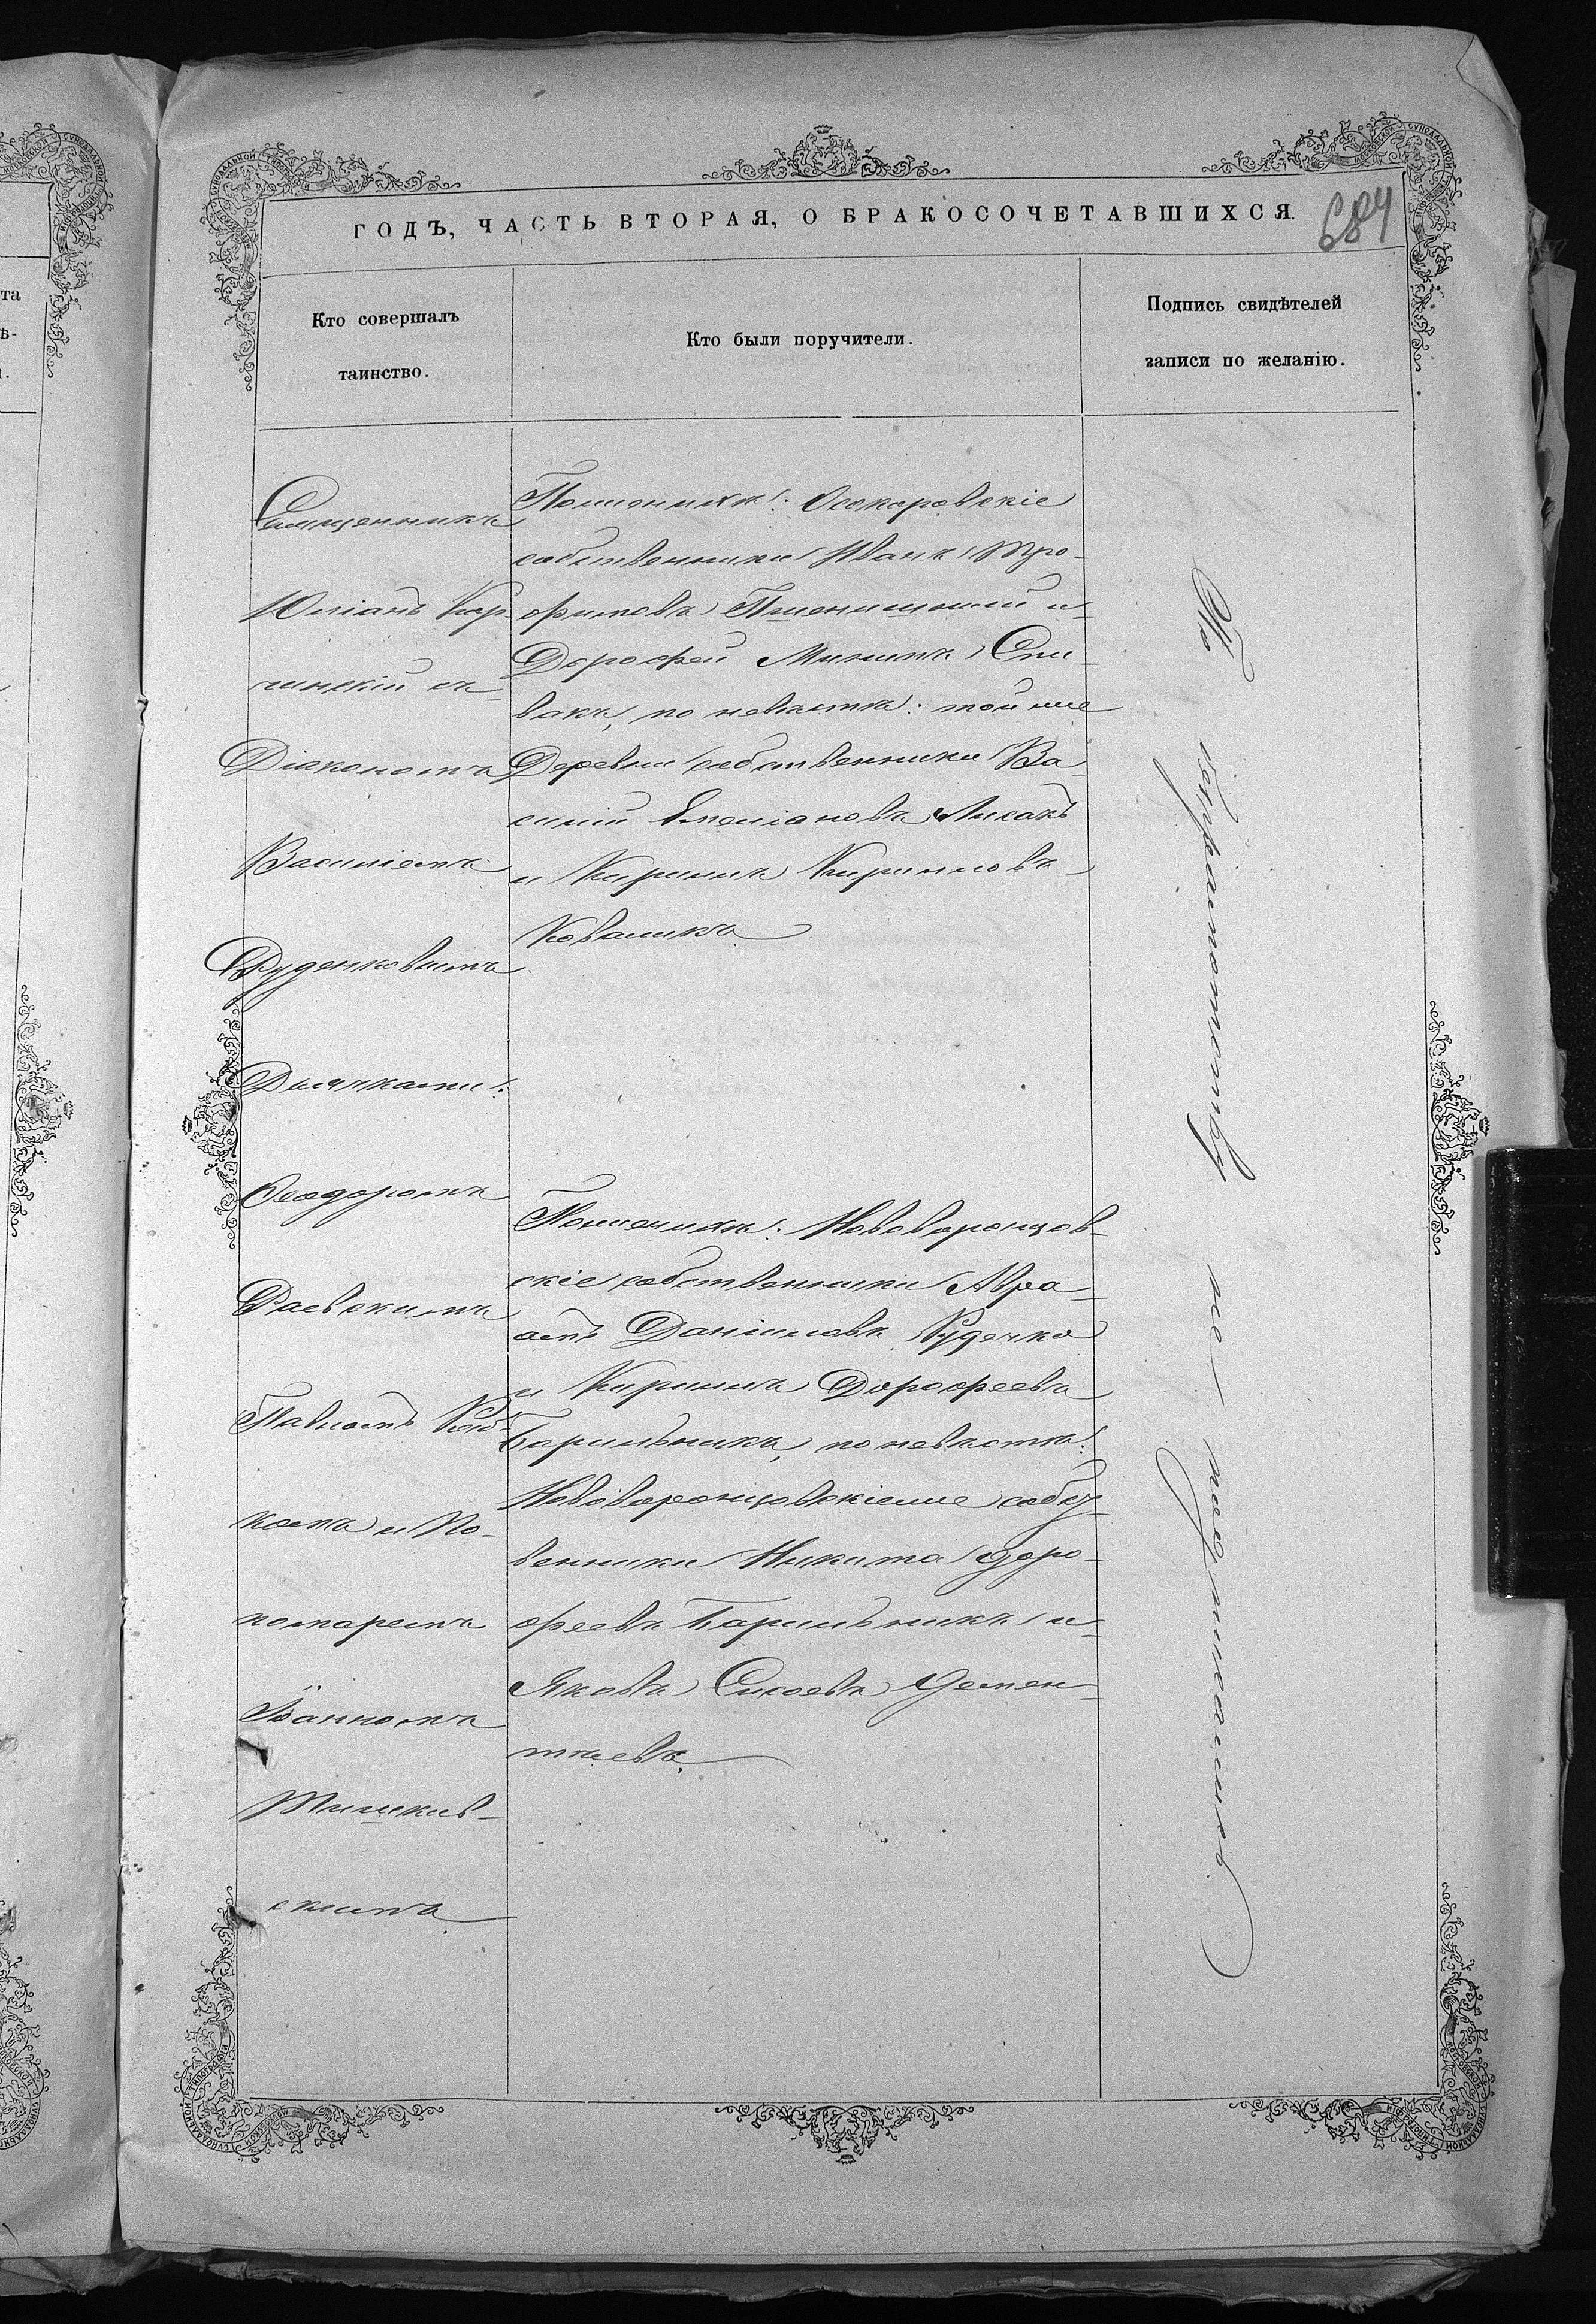 ГОДЪ, ЧАСТЬ ВТОРАЯ, О БРАКОСОЧЕТАВШИХСЯ.
684
Кто совершалъ
таинство.
Кто были поручители.
Подпись свидѣтелей
записи по желанію.
Священникъ
Юліанъ Кар-
чинскій съ
Діакономъ
Василіемъ
Руденковымъ
Дьячками:
Ѳеодоромъ
Раевскимъ
Павломъ
комъ и По-
номаремъ
Іоанномъ
Тишкев-
скимъ
По женихѣ: Осокоровскіе
собственники Иванъ Тро-
фимовъ Пшенишный и
Дорофей Мининъ Спи-
вакъ, по невѣстѣ: той же
Деревни собственники Ва-
силій Емеліановъ Лисакъ
и Кирилъ Кириловъ
Коваликъ
По женихѣ: Нововоронцов-
скіе собственники Авра-
амъ Даніиловъ Руденко
и Кирилъ Дорофеевъ
Барильникъ, по невѣстѣ:
Нововоронцовскіеже собст-
венники Никита Доро-
феевъ Барильникъ и
Яковъ Сисоевъ Демен-
тьевъ.